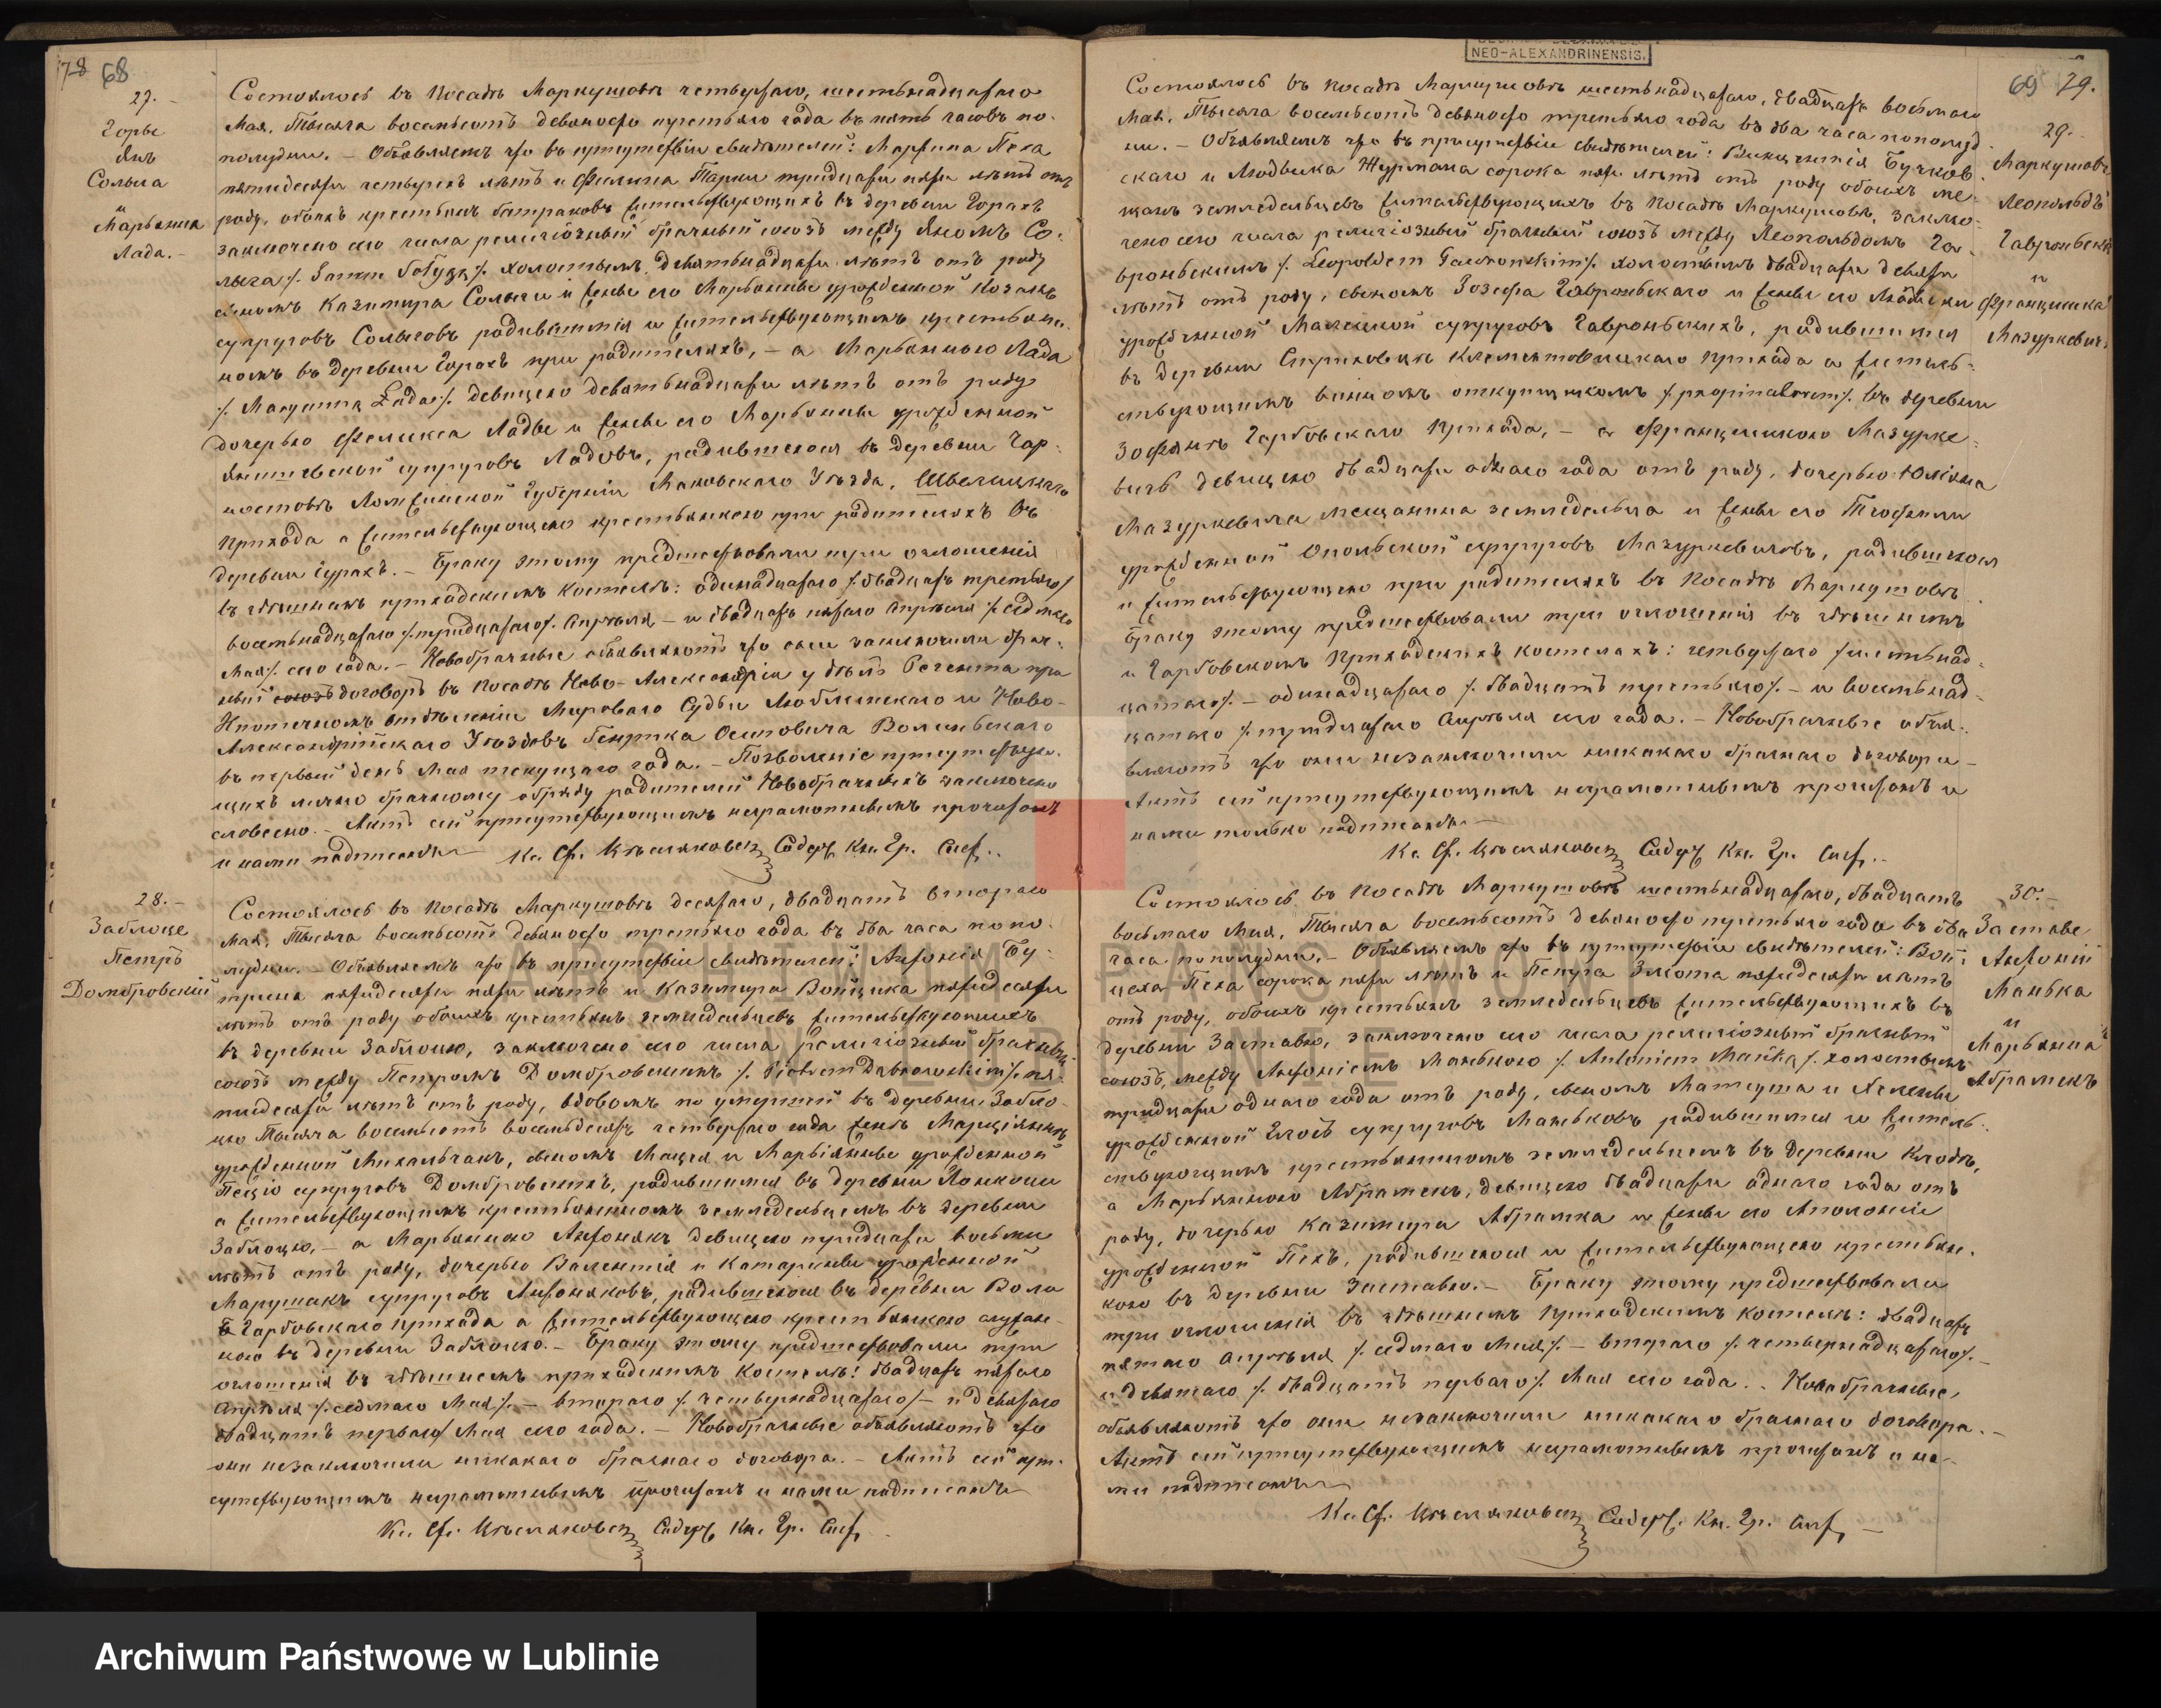 78 68
27.-
Горы
Янъ
Солыга
и
Марьянна
Лада.-
Состоялось въ посадѣ Маркушовѣ четвертаго, шестьнадцатаго
Мая, Тысяча восемьсотъ девяносто третьяго года въ пять часовъ по-
полудни. - Объявляемъ что въ присутствіи свидѣтелей: Мартина Пеха
пятидесяти четырехъ лѣтъ и Филипа тридцати пяти лѣтъ отъ
роду, обоихъ крестьянъ батраковъ жительствующихъ въ деревни Горахъ
заключено сего числа религіозный брачный союзъ между Яномъ Со-
лыга /. холостымъ, девятьнадцати лѣтъ отъ роду
сыномъ Казимира Солыги и жены его Марьянны урожденной Козакъ
супруговъ Солыговъ родившимся и жительствующимъ крестьяни-
номъ въ деревни Горахъ при родителяхъ, - а Марьянною Лада
/. Maryanną Łada /. девицею девятьнадцати лѣтъ отъ роду
дочерью Феликса Лады и жены его Марьянны урожденной
супруговъ Ладовъ, родившеюся въ деревни Чар-
ностовъ Ломжинской Губерніи Маковскаго Уѣзда, Швелицкаго
прихода а жительствующею крестьянкою при родителяхъ въ
деревни Горахъ. - Браку этому предшествовали три оглошенія
въ здѣшнемъ приходскимъ костелѣ: одинадцатаго /двадцать третьяго/
восемьнадцатаго /.тридцатаго/. Апрѣля - и двадцать пятаго Апрѣля /. седмаго
Мая/. сего года. - Новобрачные объявляютъ что они заключили брач-
ный союзъ договоръ въ посадѣ Ново-Александріи у дѣлъ Регента при
Ипотечномъ отдѣленіи Мироваго Судьи Люблинскаго и Ново-
Александрійскаго Уѣздовъ Генрика Осиповича Волинскаго
въ первый день Мая текущаго года. - Позволеніе присутствую-
щихъ лично брачному обряду родителей Новобрачныхъ заключено
словесно. - Актъ сей присутствующимъ неграмотнымъ прочитанъ
и нами подписанъ Кс. Ст. Содерж. Кн. Гр. Сост.
28.-
Заблоце
Петръ
Домбровскій
Состоялось въ посадѣ Маркушовѣ десятаго, двадцать втораго
Мая, Тысяча восемьсотъ девяносто третьяго года въ два часа попо-
лудни. - Объявляемъ что въ присутствіи свидѣтелей: Антонія Бу-
пятидесяти пяти лѣтъ и Казимира Войцика пятидесяти
лѣтъ отъ роду обоихъ крестьянъ земледельцевъ жительствующихъ
въ деревни Заблоцю, заключено сего числа религіозный брачный
союзъ между Петромъ Домбровскимъ /. Piotrem Dąbrowskim /. пя-
тидесяти лѣтъ отъ роду, вдовомъ по умершей въ деревни Забло-
цю Тысяча восемьсотъ восемьдесятъ четвертаго года женѣ Марціаннѣ
урожденной Михальчакъ, сыномъ Мацея и Марьянны урожденной
супруговъ Домбровскихъ, родившимся въ деревни Лонкоци
а жительствующимъ крестьяниномъ земледельцемъ въ деревни
Заблоцю, - а Марьянною Антонякъ девицею тридцати восьми
лѣтъ отъ роду, дочерью Валентія и Катарины урожденной
Марушакъ супруговъ Антоняковъ, родившеюся въ деревни Воли
Гарбовскаго прихода а жительствующею крестьянкою служан-
кою въ деревни Заблоцю. - Браку этому предшествовали три
оглошенія въ здѣшнемъ приходскимъ костелѣ: двадцать пятаго
Апрѣля /. седмаго Мая/. - втораго /. четырнадцатаго/ - и девятаго
двадцать перваго/ Мая сего года. - Новобрачные объявляютъ что
они незаключили никакаго брачнаго договора. - Актъ сей при-
сутствующимъ неграмотнымъ прочитанъ и нами подписанъ
Кс. Ст. Содерж. Кн. Гр. Сост.
NEO-ALEXANDRINENSIS.
69 79.
29.-
Маркушовъ
Леопольдъ
Гавроньскій
и
Францишка
Мазуркевичъ
Состоялось въ посадѣ Маркушовѣ шестьнадцатаго, двадцать восьмаго
Мая, Тысяча восемьсотъ девяносто третьяго года въ два часа пополуд-
ни. - Объявляемъ что въ присутствіи свидѣтелей: Викентія Бучков-
скаго и Людвика Журмана сорока пяти лѣтъ отъ роду обоихъ ме-
щанъ земледельцевъ жительствующихъ въ посадѣ Маркушовѣ, заклю-
чено сего числа религіозный брачный союзъ между Леопольдомъ Га-
вроньскимъ /. Leopoldem Gawrońskim /. холостымъ двадцати девяти
лѣтъ отъ роду, сыномъ Іозефа Гавроньскаго и жены его Людвики
урожденной супруговъ Гавроньскихъ, родившимся
въ деревни Клементовицкаго прихода а житель-
ствующимъ виннымъ откупщикомъ /propinatorem/. въ деревни
Зофянъ Гарбовскаго прихода, - а Францишкою Мазурке-
вичъ девицею двадцати однаго года отъ роду, дочерью Юліана
Мазуркевича мещанина земледельца и жены его Теофили
урожденной Опольской супруговъ Мазуркевичовъ, родившеюся
и жительствующею при родителяхъ въ посадѣ Маркушовѣ.
Браку этому предшествовали три оглошенія въ здѣшнимъ
и Гарбовскомъ Приходскихъ костелахъ: четвертаго /шестьнад-
цатаго/. - одинадцатаго /. двадцать третьяго/. - и восемьнад-
цатаго /. тридцатаго Апрѣля сего года. - Новобрачные объя-
вляютъ что они незаключили никакаго брачнаго договора -
Актъ сей присутствующимъ неграмотнымъ прочитанъ и
нами только подписанъ
Кс. Ст. Содерж. Кн. Гр. Сост.
30.-
Заставе
Антоній
Манька
и
Марьянна
Абрамекъ
Состоялось въ посадѣ Маркушовѣ шестьнадцатаго, двадцать
восьмаго Мая, Тысяча восемьсотъ девяносто третьяго года въ два
часа пополудни. - Объявляемъ что въ присутствіи свидѣтелей: Вой-
цеха Пеха сорока пяти лѣтъ и Петра пятидесяти лѣтъ
отъ роду, обоихъ крестьянъ земледельцевъ жительствующихъ въ
деревни Заставю, заключено сего числа религіозный брачный
союзъ, между Антоніемъ Манькою /. Antonim Mańką /. холостымъ
тридцати однаго года отъ роду, сыномъ Матеуша и Хелены
урожденной супруговъ Маньковъ родившимся и житель-
ствующимъ крестьяниномъ земледельцемъ въ деревни Клодѣ,
а Марьянною Абрамекъ, девицею двадцати однаго года отъ
роду, дочерью Казимира Абрамка и жены его Аполоніи
урожденной Пехъ, родившеюся и жительствующею крестьян-
кою въ деревни Заставю. - Браку этому предшествовали
три оглошенія въ здѣшнемъ приходскимъ костелѣ: двадцать
пятаго Апрѣля /. седмаго Мая/. - втораго /. четырнадцатаго/. -
и девятаго /. двадцать перваго/. Мая сего года. - Новобрачные,
объявляютъ что они незаключили никакаго брачнаго договора. -
Актъ сей присутствующимъ неграмотнымъ прочитанъ и на-
ми подписанъ
Кс. Ст. Содерж. Кн. Гр. Сост. -
ARCHIWUM PAŃSTWOWE
W LUBLINIE
Archiwum Państwowe w Lublinie